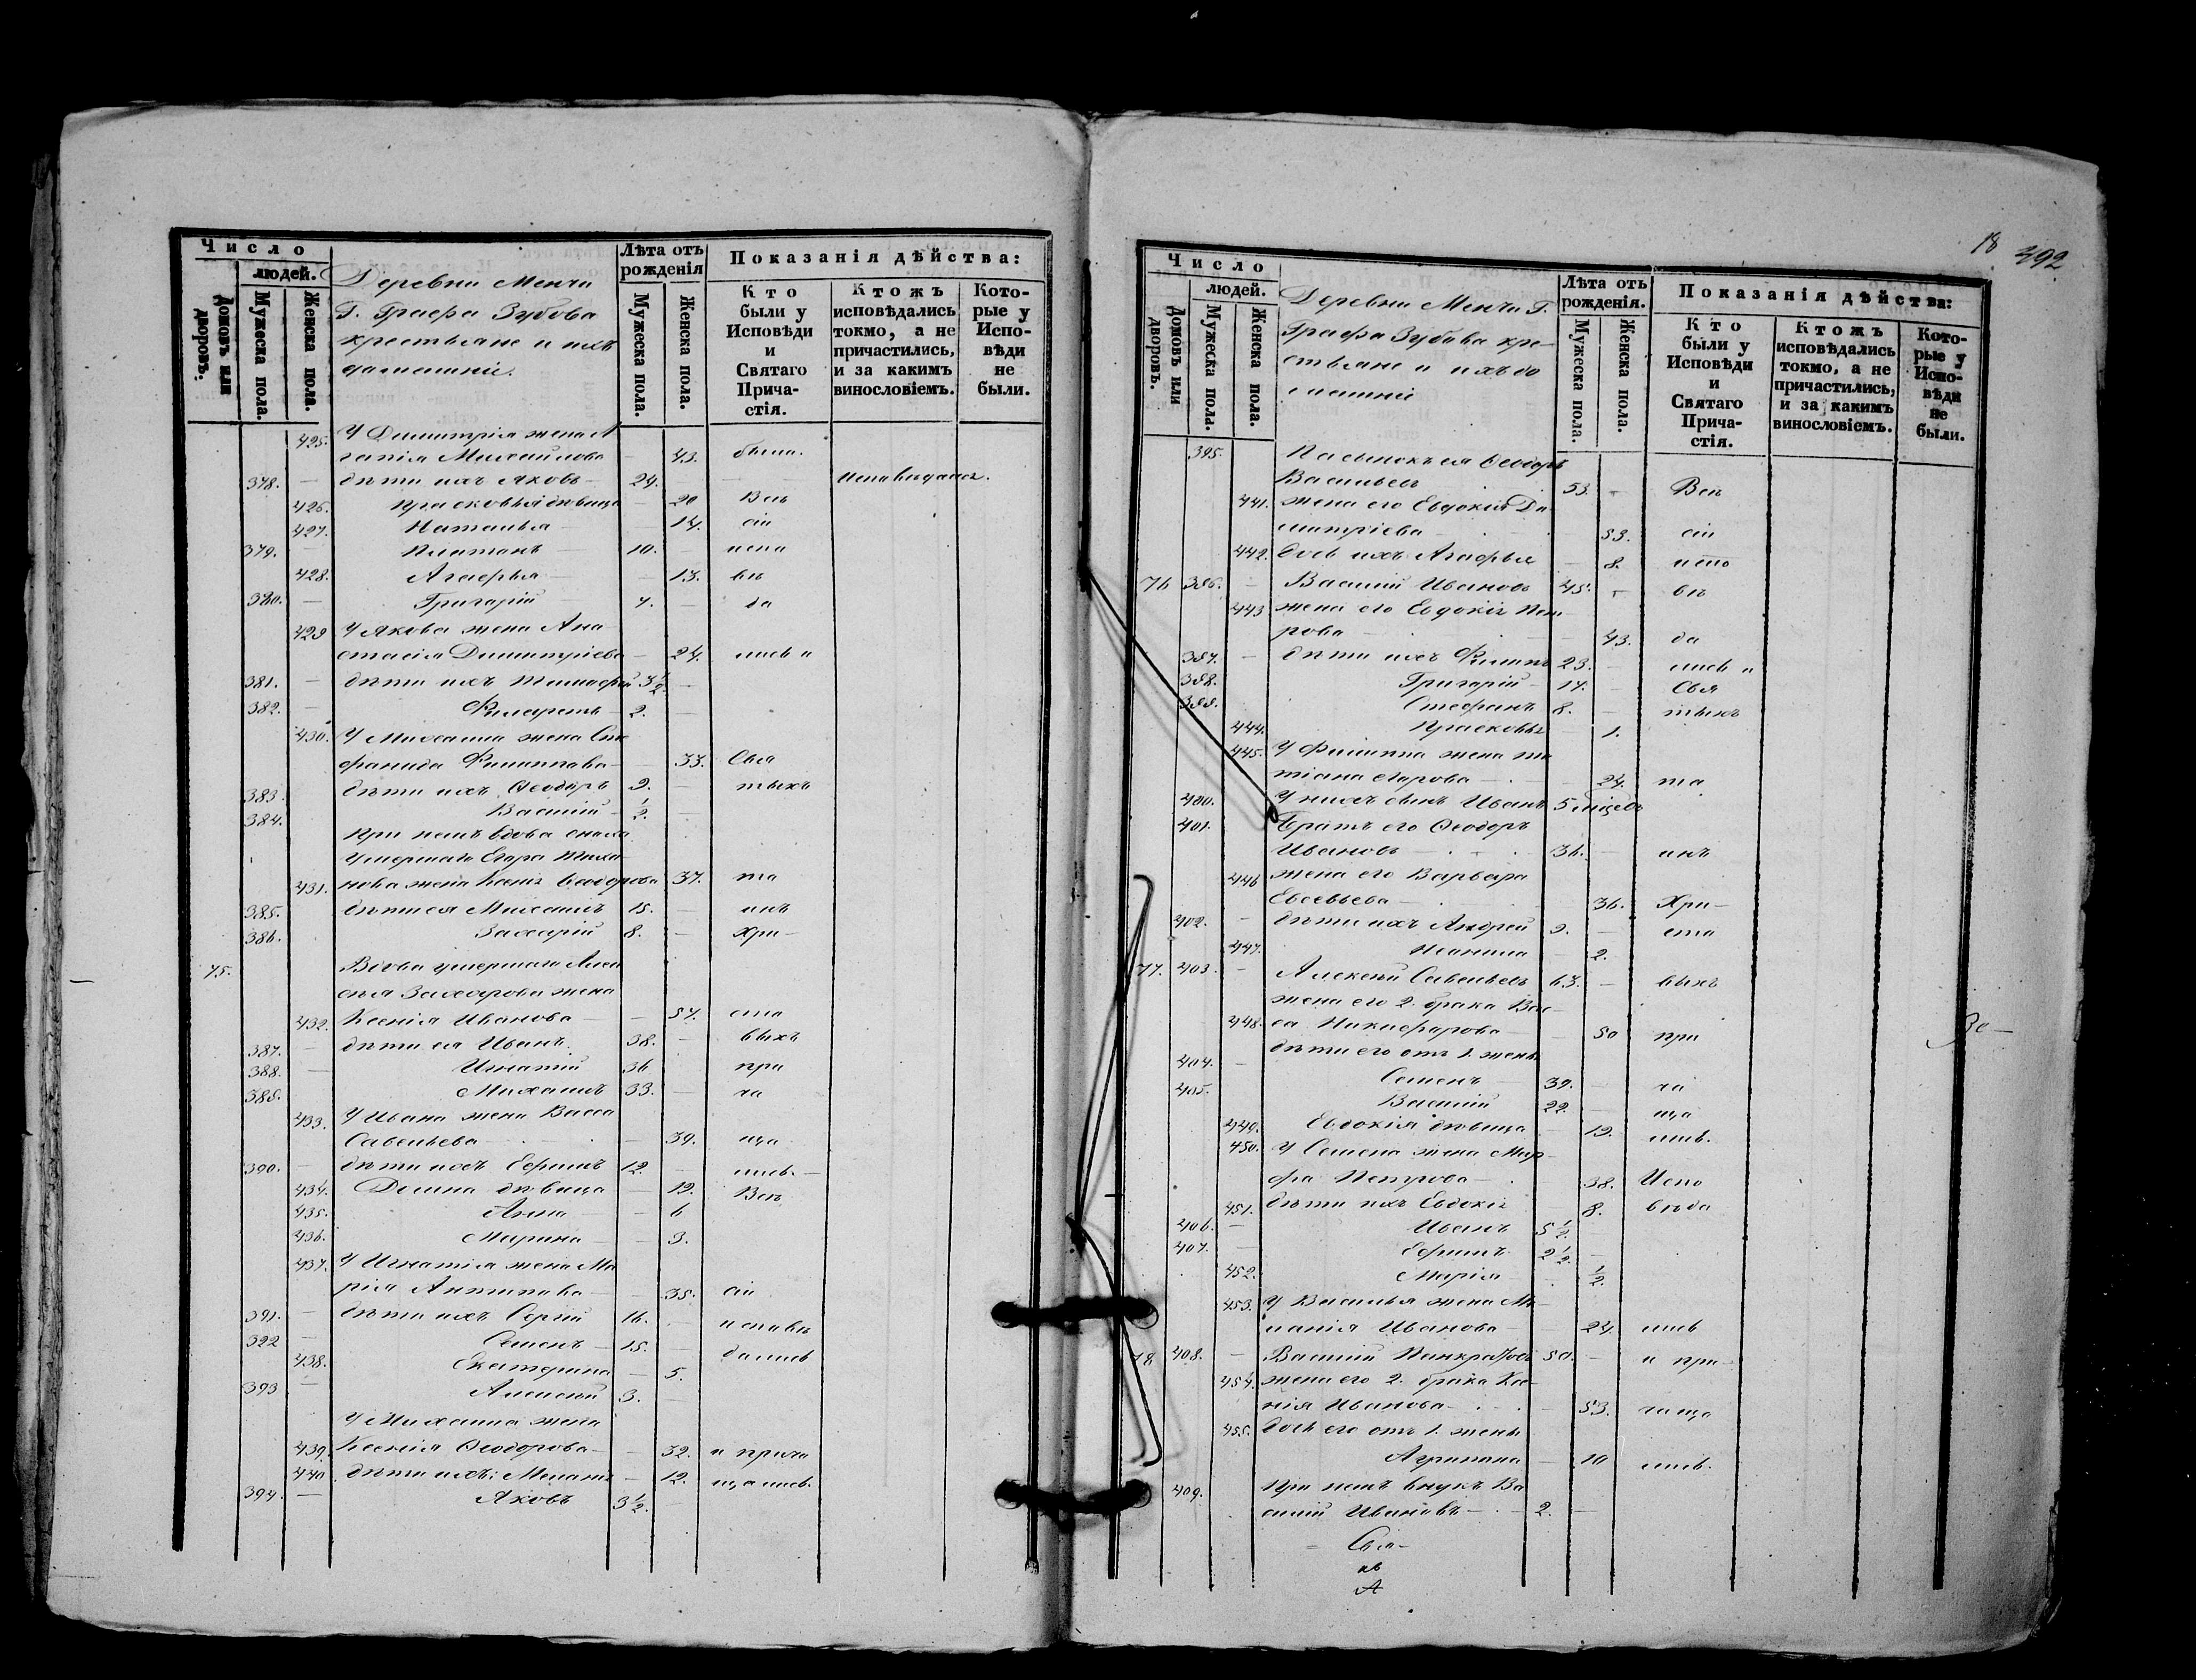 Число
людей.
Домовъ или дворовъ.
Мужеска пола.
Женска пола.
Деревни Менчи
Г. Графа Зубова
крестьяне и ихъ
домашніи.
Лѣта отъ рожденія
Мужеска пола.
Женска пола.
Показанія дѣйства:
Кто были у Исповѣди и Святаго Причастія.
Ктожъ исповѣдались токмо, а не причастились, и за какимъ винословіемъ.
Которые у Исповѣди не были.
425. У Димитрія жена А
гапія Михайлова — 43. была.
378. — дѣти ихъ Яковъ — 24. —
426. Прасковья дѣвица — 20 Всѣ
427. Наталья — 14. сіи
379. — Платонъ — 10. — испо
428. Агафья — 13. вѣ
380. — Григорій — 4. — да
429 У Якова жена Ана
стасія Димитріева — 24. лись и
381. — дѣти ихъ Тимофей 3 1/2 —
382. — Филаретъ — 2. —
430. У Михаила жена Сте
фанида Филиппова — 33. Свя
383. дѣти ихъ Ѳеодоръ 9. — тыхъ
384. Василій — 1/2. —
При немъ вдова сноха
умершаго Егора Тихо
431. нова жена Ксенія Ѳеодорова 37. та
385. дѣти ея Михаилъ 15. — инъ
386. Захарій 8. — Хри—
75. Вдова умершаго Алек
сѣя Захарова жена
432. Ксенія Иванова — 57. сто
387. — дѣти ея Иванъ 38. — выхъ
388. — Игнатій 36 при
389. Михаилъ 33. — ча
433. У Ивана жена Васса
Савельева — 39. ща
390. — дѣти ихъ Ефимъ 12. — лись. —
434. Домна дѣвица — 12. Всѣ
435. Анна — 6
436. Марина — 3.
437. У Игнатія жена Ма
рія Антипова — 35. сіи
391. — дѣти ихъ Сергій 16. — исповѣ
392 — Семенъ — 15. — дались
438. Екатерина — 5.
393 — Алексѣй 3. —
У Михаила жена
439. Ксенія Ѳеодорова — 32. и прича
440 дѣти ихъ: — 12. щались.
394. — Яковъ 3 1/2. —
18 392
Число
людей.
Домовъ или дворовъ.
Мужеска пола.
Женска пола.
Деревни Менчи Г.
Графа Зубова кре—
стьяне и ихъ до
машніи
Лѣта отъ рожденія.
Мужеска пола.
Женска пола.
Показанія дѣйства:
Кто были у Исповѣди и Святаго Причастія.
Ктожъ исповѣдались токмо, а не причастились, и за какимъ винословіемъ.
Которые у Исповѣди не были.
395. Пасынокъ ея Ѳеодоръ
Васильевъ 53. — Всѣ
441. жена его Евдокія Ди
митріева — 53. сіи
442. дочь ихъ Агафья — 8. испо
76 396. — Василій Ивановъ 45. — вѣ
443 жена его Евдокія Пет
рова — 43. да
387. — дѣти ихъ Филиппъ 23. — лись и
388. Григорій — 14. — Свя
Стефанъ 8. — тыхъ
444. Прасковья — 1.
445. У Филиппа жена Та
тіана Егорова — 24. та
400. У нихъ сынъ Иванъ 5 мѣсяц
401. Братъ его Ѳеодоръ
Ивановъ — 36. — инъ
446 жена его Варвара
Евсевьева — 36. Хри—
402. — дѣти ихъ Андрей 9. — сто
447. — 2.
77. 403. — Алексѣй Савельевъ 63. — выхъ
жена его 2. брака Вас—
448. са Никифорова — 50 при
404. — дѣти его отъ 1. жены
Семенъ — 39. — ча
405. Василій 22. — ща
449. Евдокія дѣвица — 19. лись.
450. У Семена жена Мар—
фа Петрова — 38. Испо
451. дѣти ихъ Евдокія — 8. вѣда
406. — Иванъ 5 1/2. —
407. — Ефимъ 2 1/2. —
452. Марія — 1/2.
453. У Василья жена Ме—
ланія Иванова — 24. лись
78 408. — Василій Панкратовъ 50. — и при—
454. жена его 2. брака Ксе—
нія Иванова — 53. чаща
455. дочь его отъ 1. жены
Агрипина — 10 лись.
409. При немъ внукъ Ва
силій Ивановъ — 2. —
Свя—